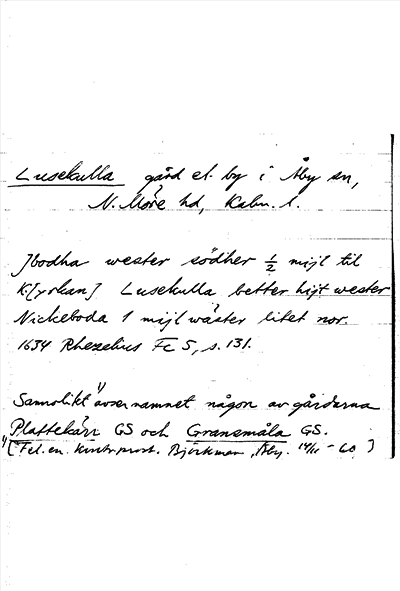 Lusekulla gård el. by i Åby sn,
N. Möre hd, Kalm. l.
Jbodha wester södher ½ mijl til
K[yrkan] Lusekulla better hijt wester
Nickeboda 1 mijl wäster litet nor.
1634 Rhezelius Fc 5, s. 131.
Sannolikt avser namnet någon av gårdarna
Plattekärr GS och Gransmåla GS.
(Tel. en. kontr.prost. Björkman, Åby. 14/11 -60)